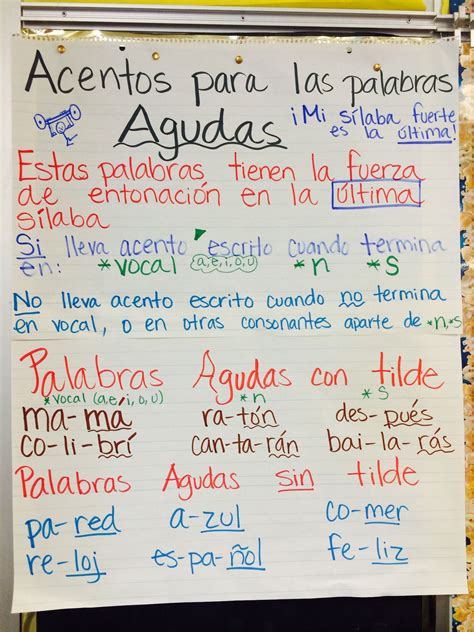 Acentos para las palabras
Agudas
¡Mi sílaba fuerte
es la última!
Estas palabras tienen la fuerza
de entonación en la última
sílaba
Si lleva acento escrito cuando termina
en: *vocal (a,e,i,o,u) *n *s
No lleva acento escrito cuando no termina
en vocal, o en otras consonantes aparte de *n,*s
Palabras Agudas con tilde
*vocal (a,e,i,o,u) *n *s
ma-má ra-tón des-pués
co-li-brí can-ta-rán bai-la-rás
Palabras Agudas sin tilde
pa-red a-zul co-mer
re-loj es-pa-ñol fe-liz